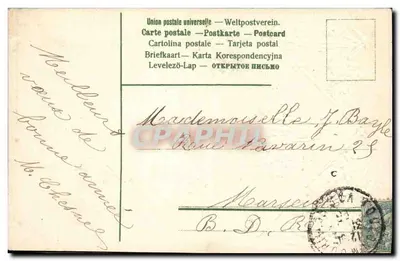 Union postale universelle — Weltpostverein.
Carte postale — Postkarte — Postcard
Cartolina postale — Tarjeta postal
Briefkaart — Karta Korespondencyjna
Levelező-Lap — ОТКРЫТОЕ ПИСЬМО
Meilleurs
vœux de
bonne année
M. Chesne
Mademoiselle J. Bayle
Rue Navarin 25
Marseille
B. D. R.